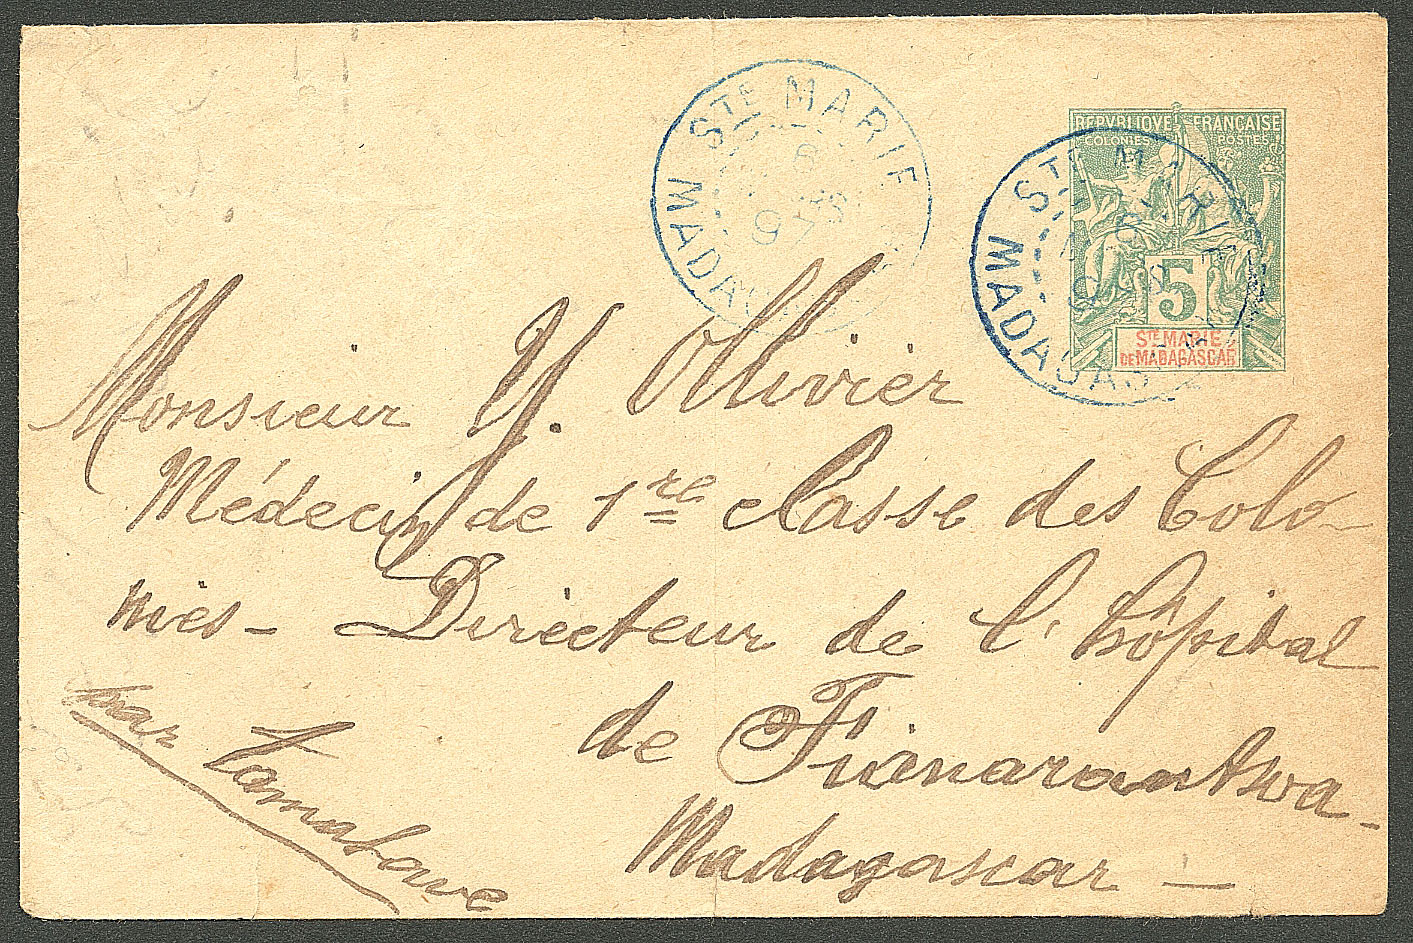 STE MARIE
MADAGASCAR
97
REPVBLIQVE FRANÇAISE
COLONIES POSTES
5
STE MARIE
DE MADAGASCAR
STE MARIE
MADAGAS
Monsieur Y. Ollivier
Médecin de 1re classe des Colo-
nies - Directeur de l'hôpital
de Fianarantsoa -
Madagascar -
par Tamatave